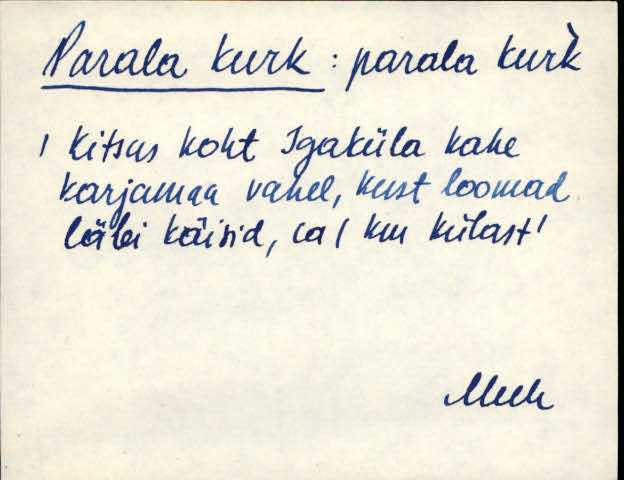 Parala kurk : parala kur̀k
' Kitsas koht Igaküla kahe
karjamaa vahel, kust loomad
läbi käisid, ca 1 km külast '